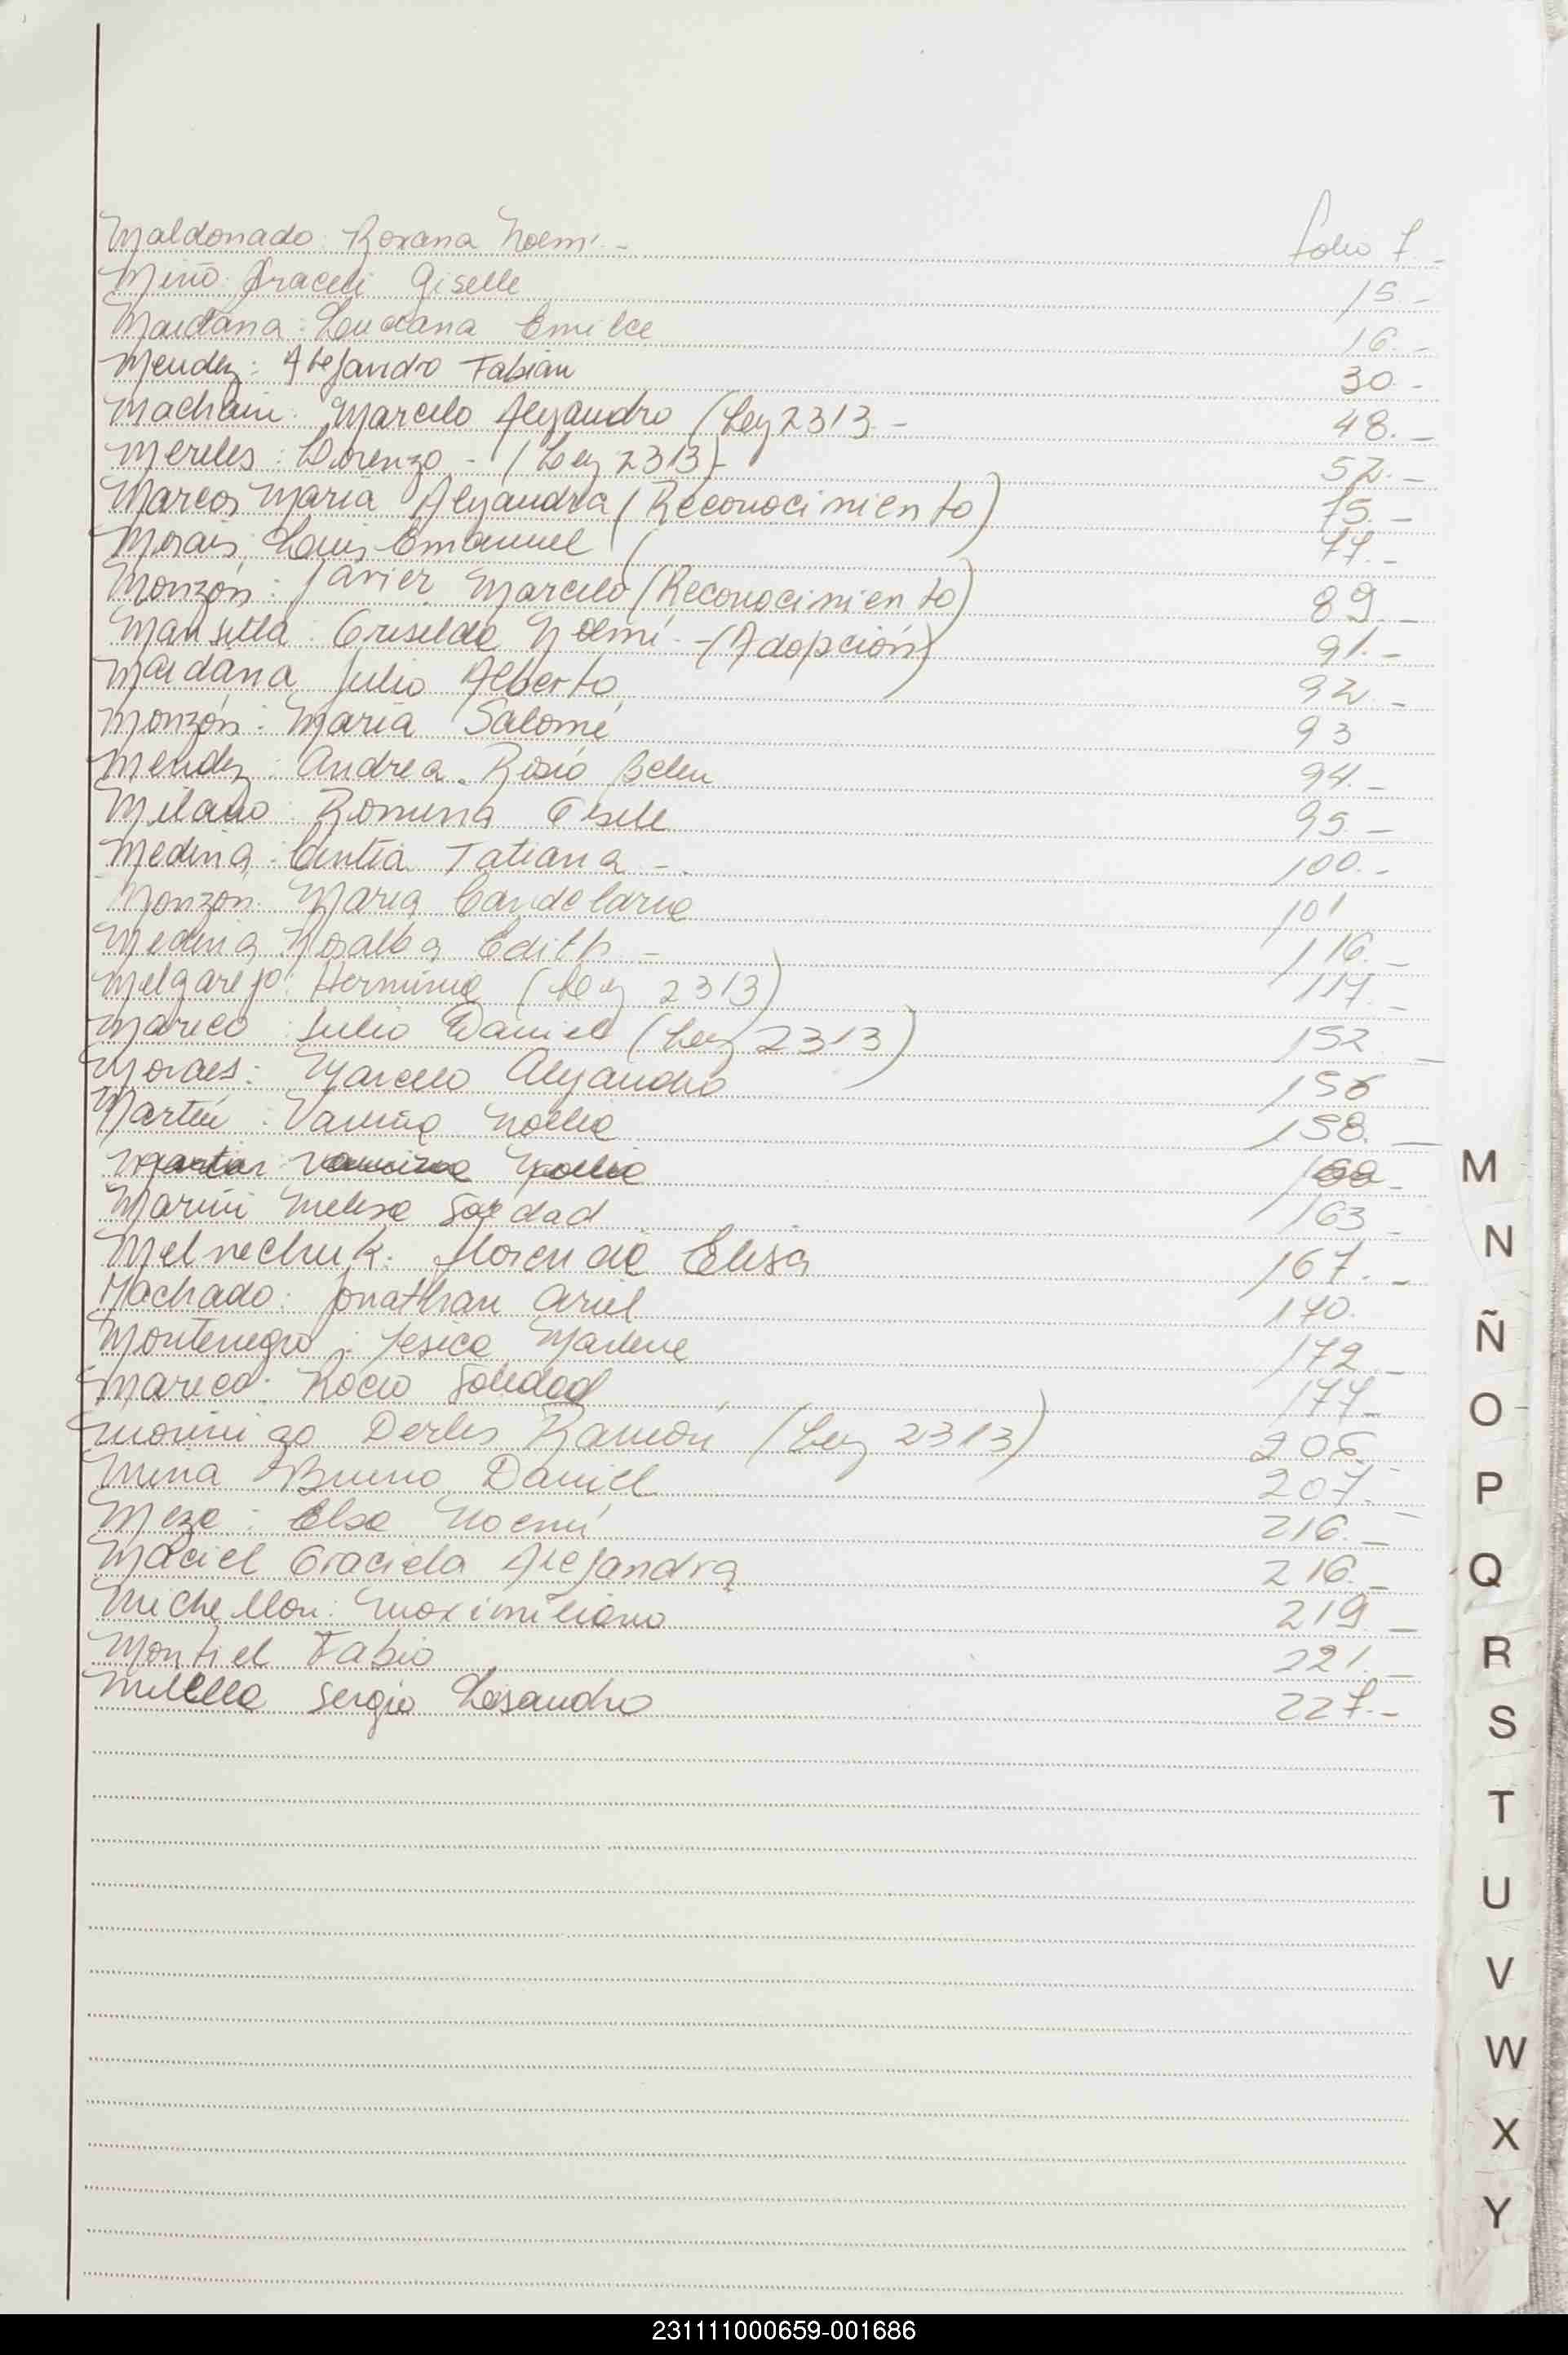 Maldonado: Roxana Noemí.- folio 7.-
Miño: Araceli Giselle 15.-
Maidana: Luciana Emilce 16.-
Mendez: Alejandro Fabian 30.-
Machain: Marcelo Alejandro (Ley 2313.- 48.-
Mereles: Lorenzo - (Ley 2313)- 52.-
Marcos María Alejandra (Reconocimiento) 75.-
Morais: Luis Emanuel ( 77.-
Monzón: Javier Marcelo (Reconocimiento) 89.-
Mansilla: Griselda Noemí.-(Adopción) 91.-
Maidana Julio Alberto 92.-
Monzón: María Salomé 93
Mendez: Andrea Rosio Belen 94.-
Milano: Romina Gisele 95.-
Medina: Cintia Tatiana - 100.-
Monzón: María Candelaria 101
Medina Rosalba Edith - 116.-
Melgarejo: Herminia (Ley 2313) 117.-
Mareco: Julio Daniel (Ley 2313) 152.-
Moraes: Marcelo Alejandro 156
Martín: Vanina Noelia 158.-
Martin Vanina Noelia
Marini Melisa Soledad 163
Melnechuk: Florencia Elisa 167.-
Machado: Jonathan Ariel 170.
Montenegro: Jesica Marlene 172.-
Mareco: Rocio Soledad 177.-
Morinigo Derlis Ramón (Ley 2313) 206.-
Mina Bruno Daniel 207.-
Meza: Elsa Noemí 216.-
Maciel Graciela Alejandra 216.-
Michellon: Maximiliano 219.-
Montiel Fabio 221.-
Milella Sergio Lisandro 227.-
M
N
Ñ
O
P
Q
R
S
T
U
V
W
X
Y
231111000659-001686